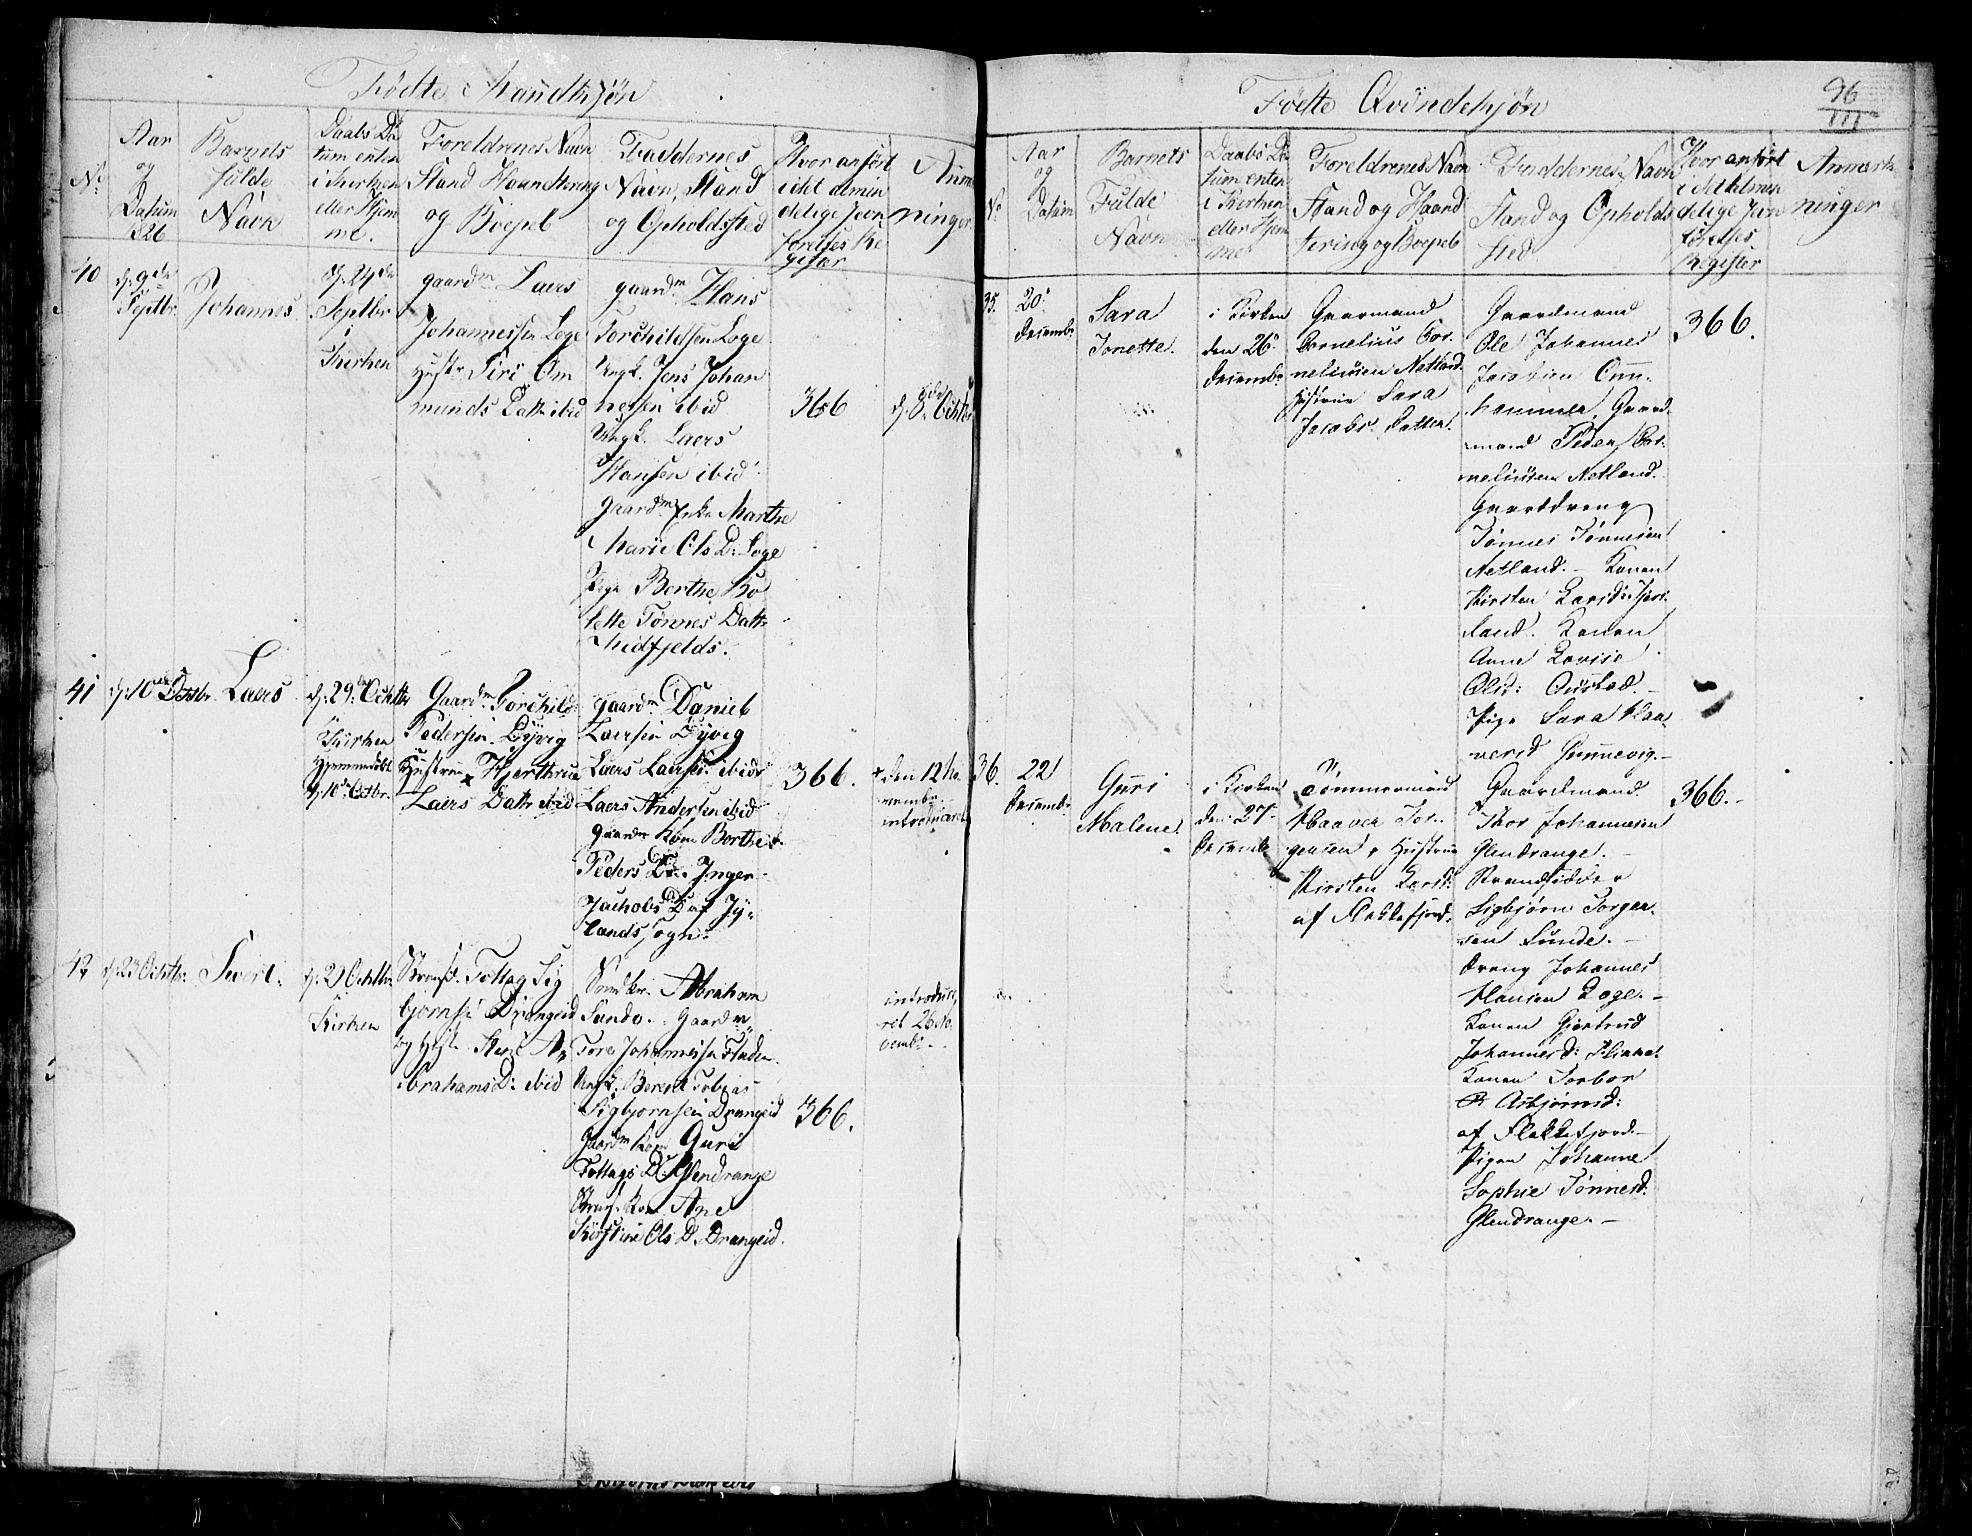 Födte Mandkjön
No
Aar
og
Datum
826
Barnets
fulde
Navn
Daabs Da
tum enten
i Kirken
eller Hjem
me.
Foreldrenes Navn
Stand Haandtering
og Boepel
Faddernes
Navn, Stand
og Opholdssted
Hvor anført
i det almin
delige Jevn
førelses Re
gister
Anm
ninger
40
d. 9de
Septbr.
Johannes
d. 24de
Septbr
i
Kirken
gaardm Laers
Johannessen Loge
Hustr Siri Om
munds Datt. ibid
gaardm Hans
Torchildsen Loge
Ungk. Jens Johan
nessen ibid
Ungk. Laers
Hansen ibid
gaardm Enke Marthe
Marie Ols D: Loge
Pige Berthe Bo
lette Tønnes Datt.
Midfjelds.
366
d. 8de Octbr
41
d. 10de Octbr.
Laers
d. 29de Octbr
Kirken
Hjemmedøbt
d. 10de Octbr.
Gaardm Torchild
Pedersen Dyvig
Hustrue Hjerthrue
Laers Datt. ibid
gaardm Daniel
Laersen Dyvig
Laers Laersen ibid
Laers Andersen ibid
gaardm Kone Berthe
Peders D: Inger
Jachobs D af Jy-
lands sogn.
366.
den 12 No
vembr.
introduceret
42
d. 23 Octbr.
Sivert.
d. 29 Octbr.
Kirken
Strands. Tollag Sig
bjørnsen Drangeid
og Hust.
Abrahams D: ibid
Abraham
Sande. Gaardm
Tore Johannessen Fladen
Ungk. Berent Tobias
Sigbjørnsen Drangeid
Gaardm Kone Guri
Tollags D: Glendrange
Strands. Kone Ane
Kirstine Ols D. Drangeid.
366.
introduce
ret 26 No
vembr.
Födte Qvindekjön
96
No
Aar
og
Datum
Barnets
Fulde
Navn
Daabs Da
tum enten
i Kirken
eller Hjem
me
Foreldrenes Navn
Stand og Haand
tering og Boepel
Faddernes Navn
Stand og Opholds
sted
Hvor anført
i det almin
delige Jevn
førelses
Register
Anmærk
ninger
35.
20.
Decembr.
Sara
Tonette.
i Kirken
den 26
Decembr
Gaarmand
Cornelius Cor-
neliusen Netland.
Hustrue Sara
Jacobs Datter.
Gaardmand
Ole Johannes
Jacobsen
hammer. Gaard-
mand Peder Cor-
neliusen Netland.
Gaarddreng
Tønnes Tønnesen
Netland. - Konen
Kirsten Larsd:
land. Konen
Anne Lovise
Olsd:
Pige Sara Haa-
versd Gunnevig. -
366.
36.
22
Decembr
Guri
Malene.
i Kirken
den 27
Decembr
Tømmermand
Haaver Tor-
gersen, Hustrue
Kirsten Larsd:
af Flekkefjord.
Gaardmand
Thor Johannesen
Glendrange. -
Strandsidder
Sigbjørn Torger-
sen Sunde. -
Dreng Johannes
Hansen Loge. -
Konen Gjertrud
Johannesd:
Konen Torbor
Asbjørnsd:
af Flekkefjord. -
Pigen Johanne
Sophie Tønnesd:
Glendrange. -
366. -